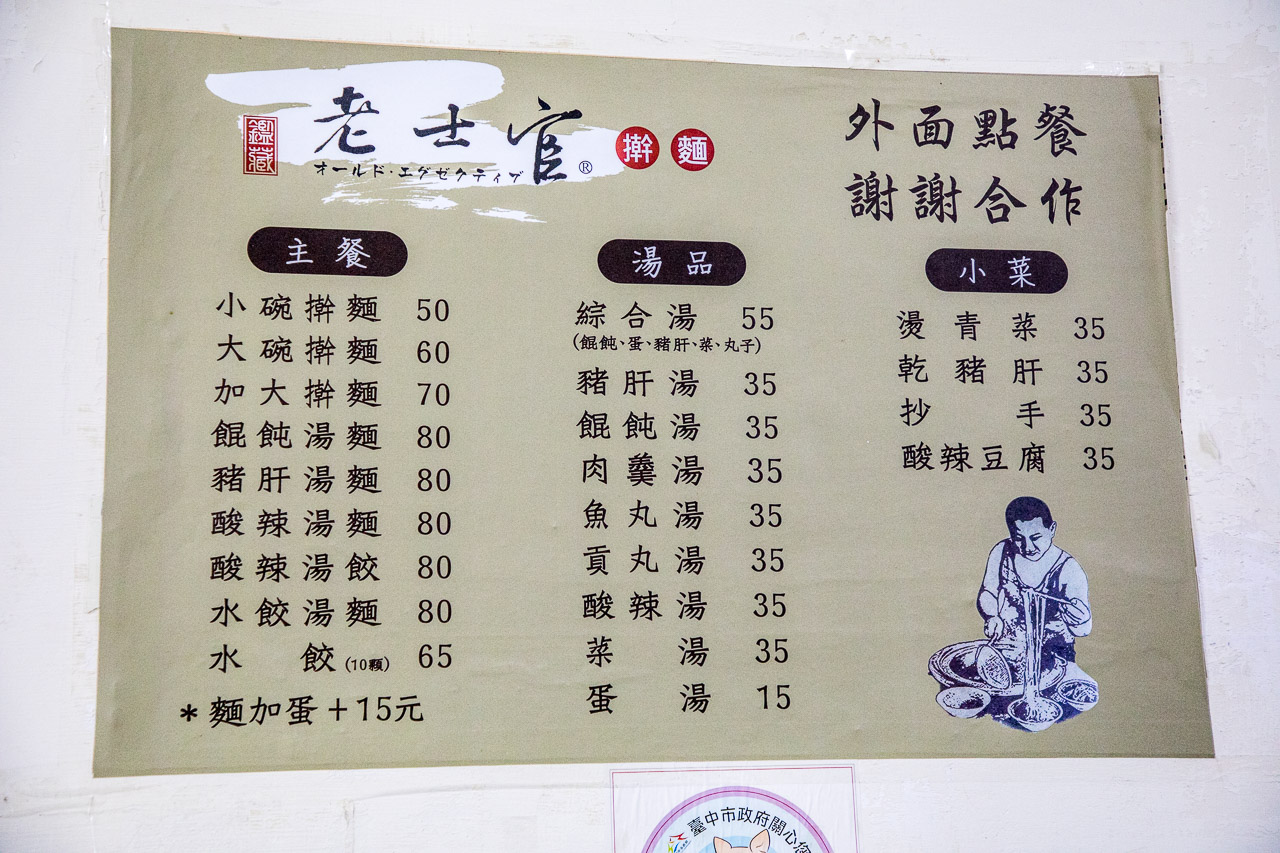 鑑藏
老士官®
擀麵
オールド・エグゼクティブ
外面點餐
謝謝合作
主餐
小碗擀麵 50
大碗擀麵 60
加大擀麵 70
餛飩湯麵 80
豬肝湯麵 80
酸辣湯麵 80
酸辣湯餃 80
水餃湯麵 80
水餃(10顆) 65
*麵加蛋+15元
湯品
綜合湯 55
(餛飩、蛋、豬肝、菜、丸子)
豬肝湯 35
餛飩湯 35
肉羹湯 35
魚丸湯 35
貢丸湯 35
酸辣湯 35
菜湯 35
蛋湯 15
小菜
燙青菜 35
乾豬肝 35
抄手 35
酸辣豆腐 35
臺中市政府關心您